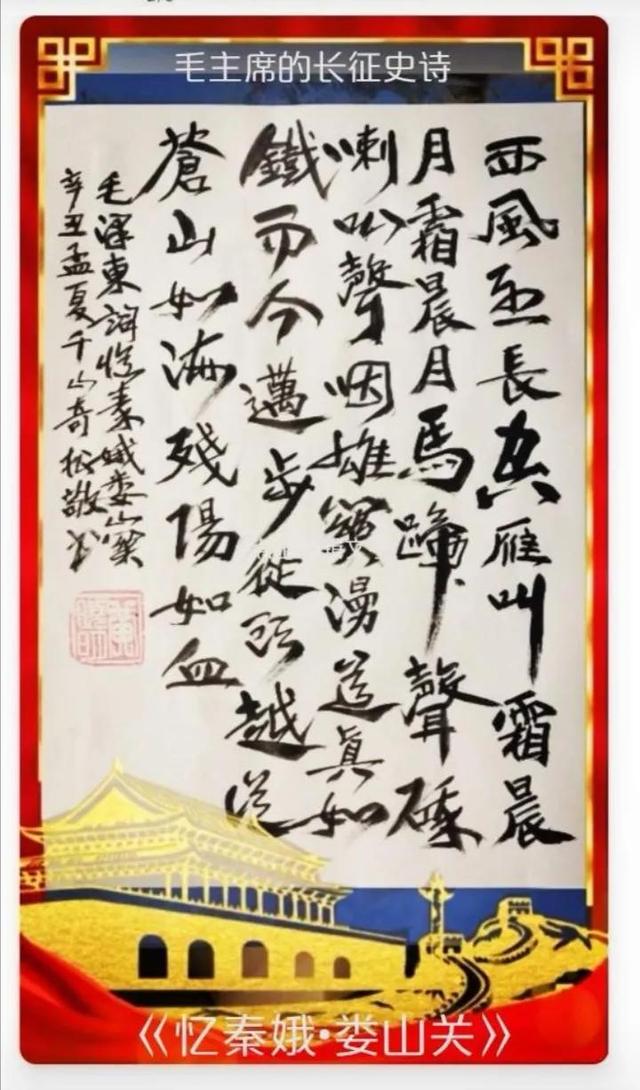 毛主席的长征史诗
西風烈長空雁叫霜晨
月霜晨月馬蹄聲碎
喇叭聲咽雄關漫道真如
鐵而今邁步從頭越從
蒼山如海殘陽如血
毛澤東詞憶秦娥娄山關
辛丑孟夏千山奇松敬书
《忆秦娥·娄山关》